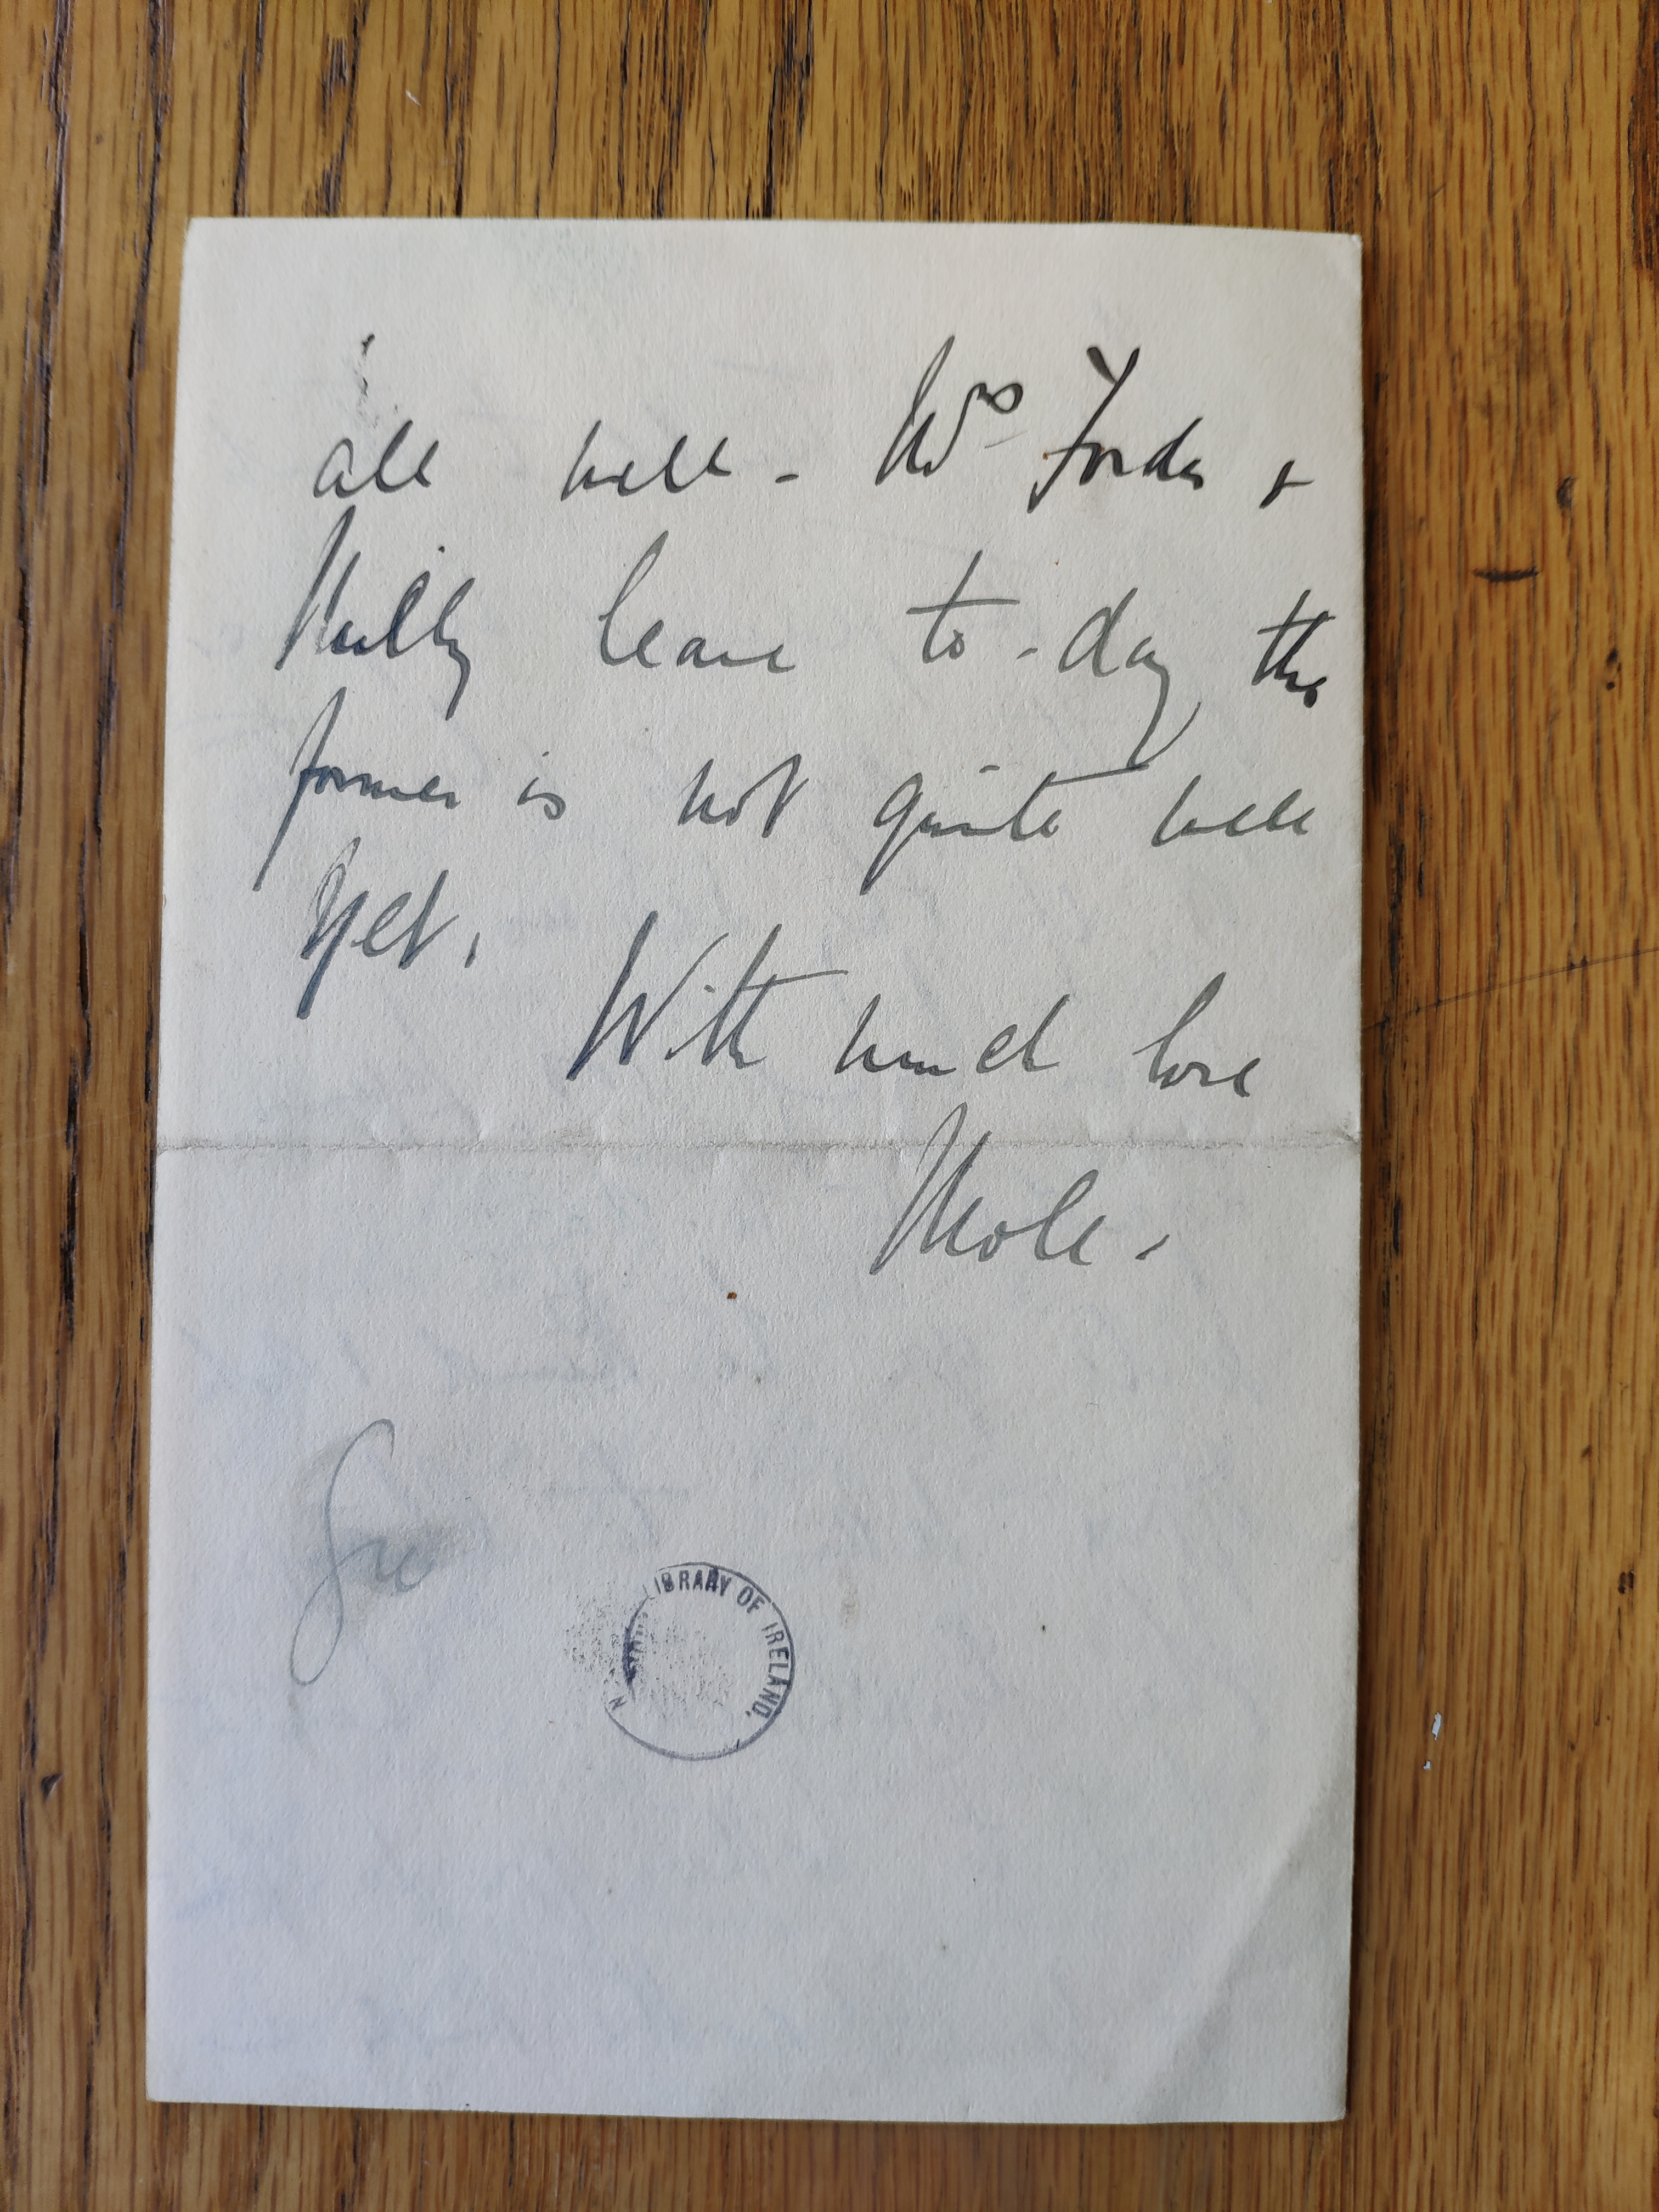 all well - Mrs Forde &
Milly leave to-day the
former is not quite well
yet.
With much love
Mole.
LIBRARY OF IRELAND.